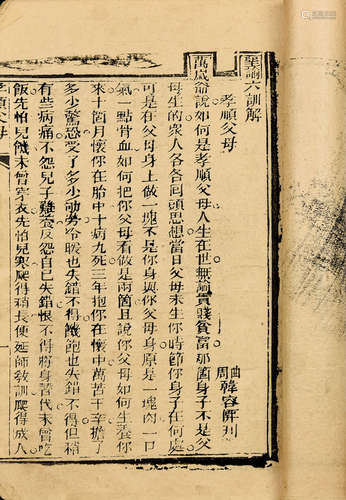 聖諭六訓解
孝順父母
曲周韓容開刊
萬歲爺說如何是孝順父母人生在世無論貴賤貧富那箇身子不是父
母生的衆人各各回頭思想當日父母未生你時節你身子在何處
可是在父母身上做一塊不是你身與你父母身原是一塊肉一口
氣一點骨血如何把你父母看做是兩箇且說你父母如何生養你
來十個月懷你在胎中十病九死三年抱你在懷中萬苦千辛擔了
多少驚恐受了多少劬勞冷暖也失錯不得饑飽也失錯不得但稍
有些病痛不怨兒子難養反怨自己失錯恨不得將身替代未曾吃
飯先怕兒饑未曾穿衣先怕兒寒爬得稍長便延師教訓爬得成人
孝順父母